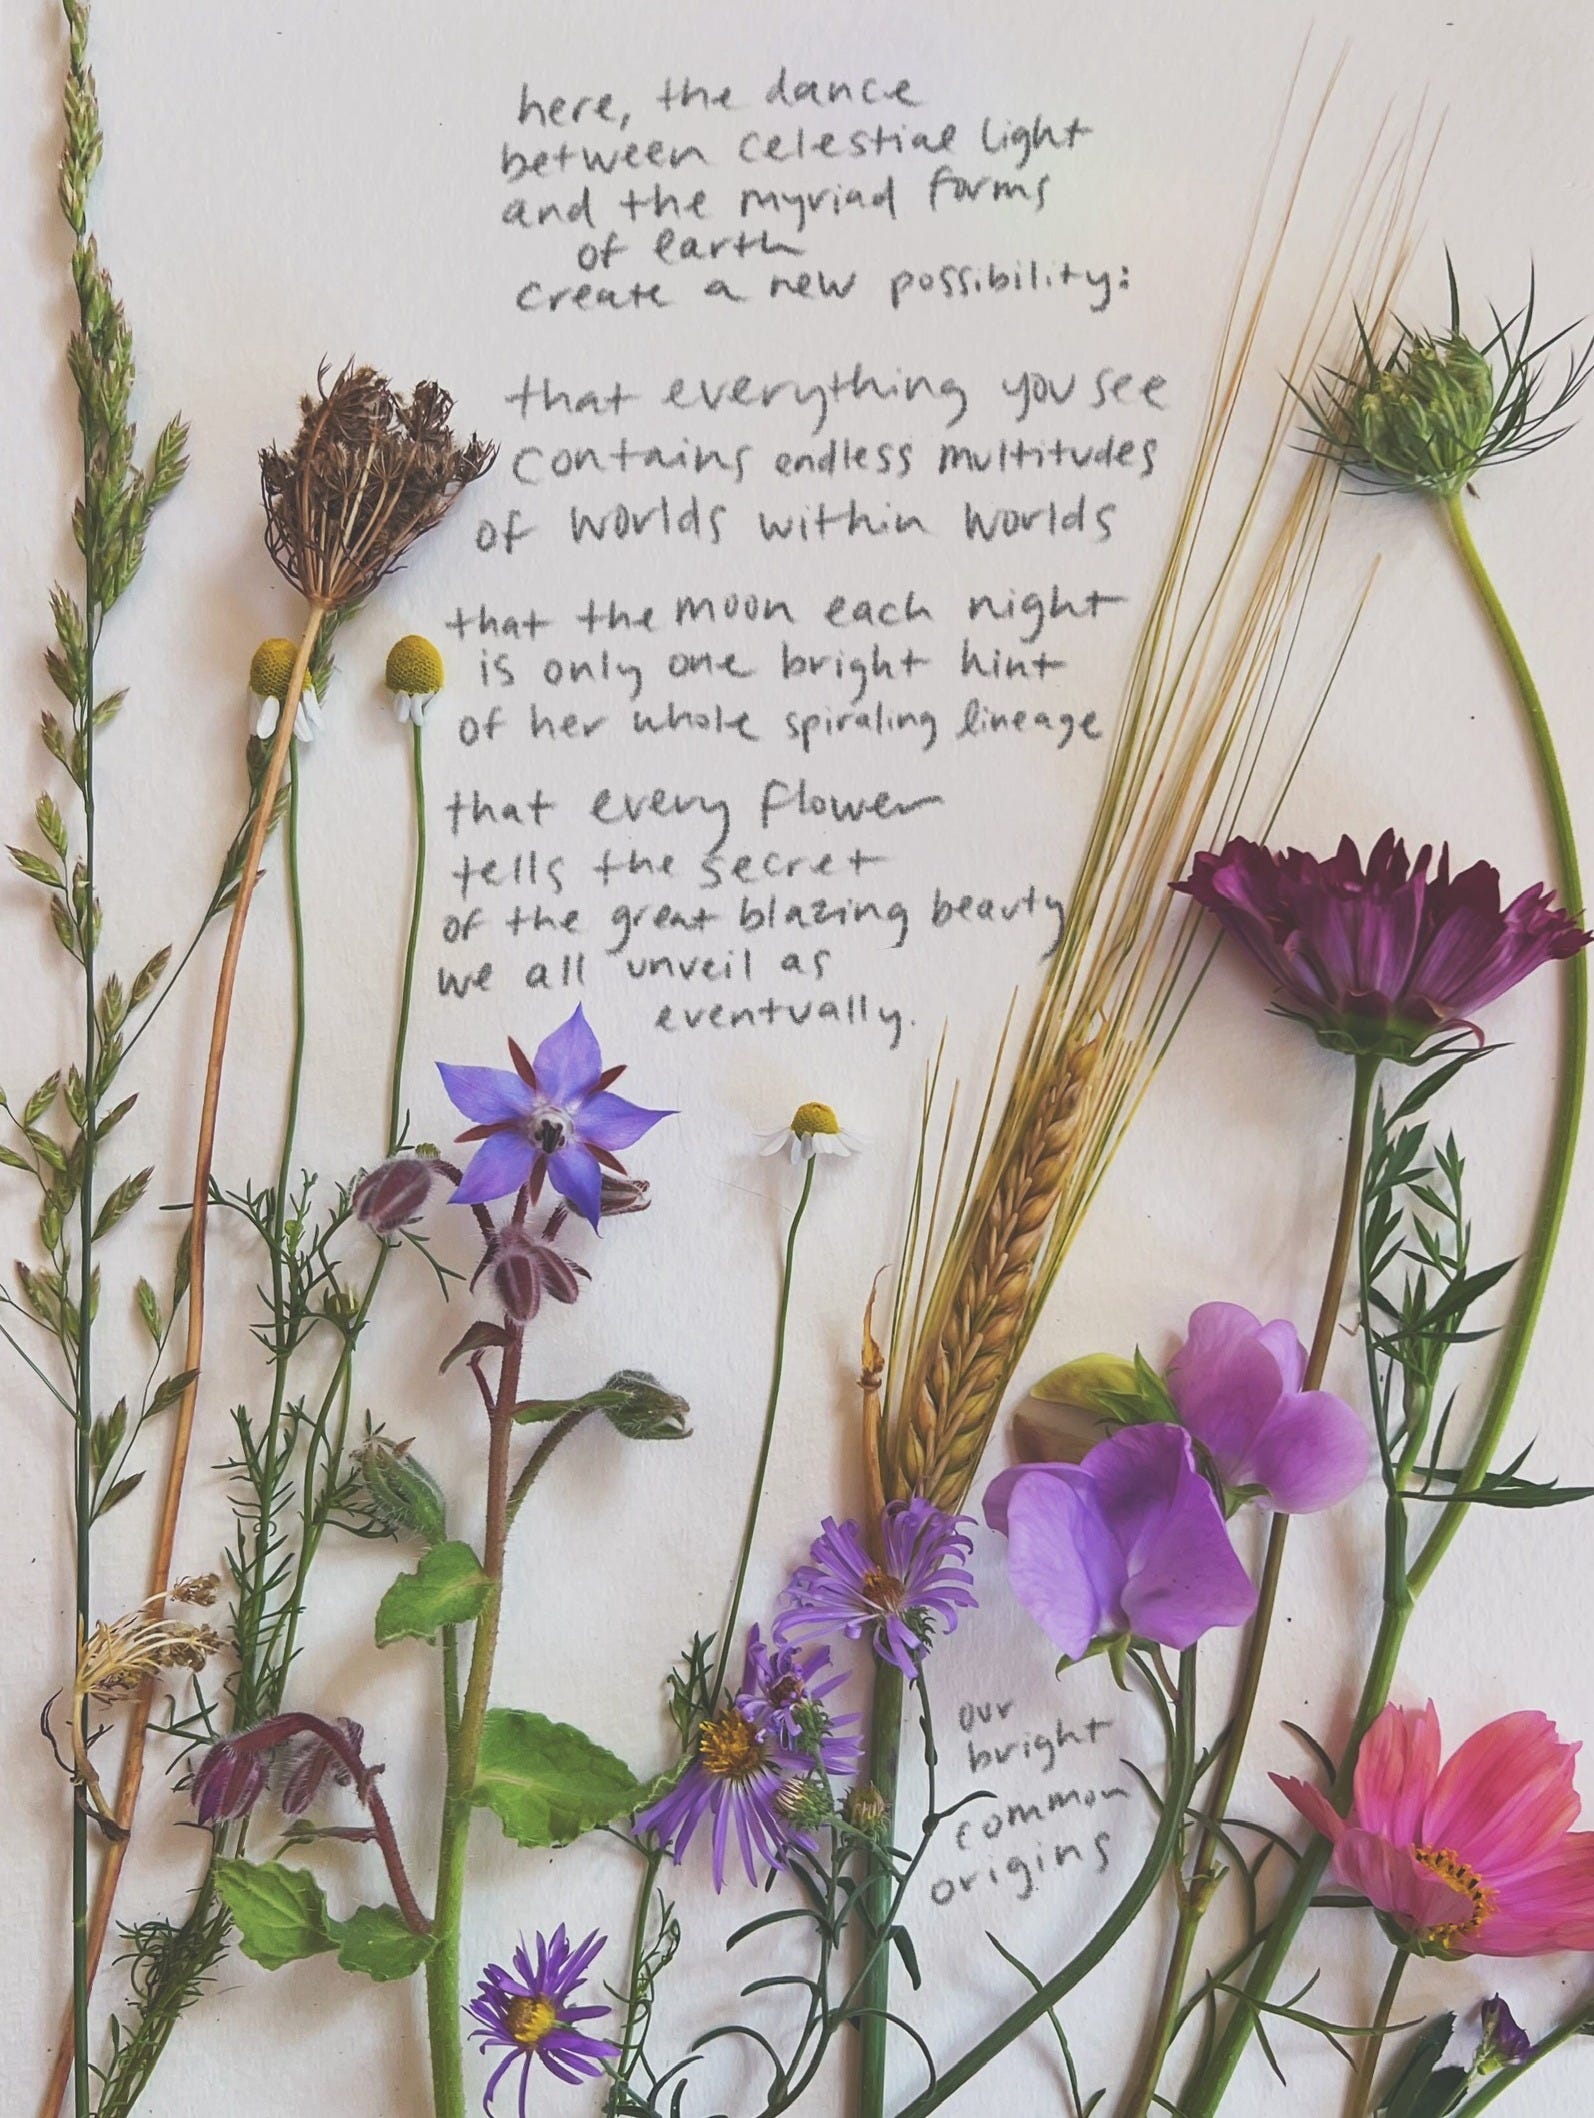 here, the dance
between celestial light
and the myriad forms
of earth
create a new possibility:
that everything you see
contains endless multitudes
of worlds within worlds
that the moon each night
is only one bright hint
of her whole spiraling lineage
that every flower
tells the secret
of the great blazing beauty
we all unveil as
eventually.
our
bright
common
origins